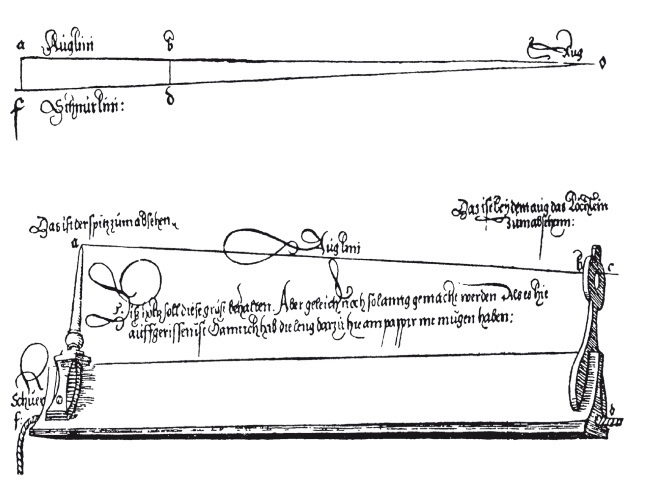 a Auglini b Aug o
f Schnurlini: d
Das ist der spitz zum absehen
Das ist bey dem aug das Löchlein
zum absehenn:
a Auglini b c
Ditz holtz soll diese gröse behalten. Aber geleich noch so lanng gemacht werden Als es hie
auffgerissen ist Dann ich hab die leng darzu hie am pappir nie mügen haben:
Schnur
f: d